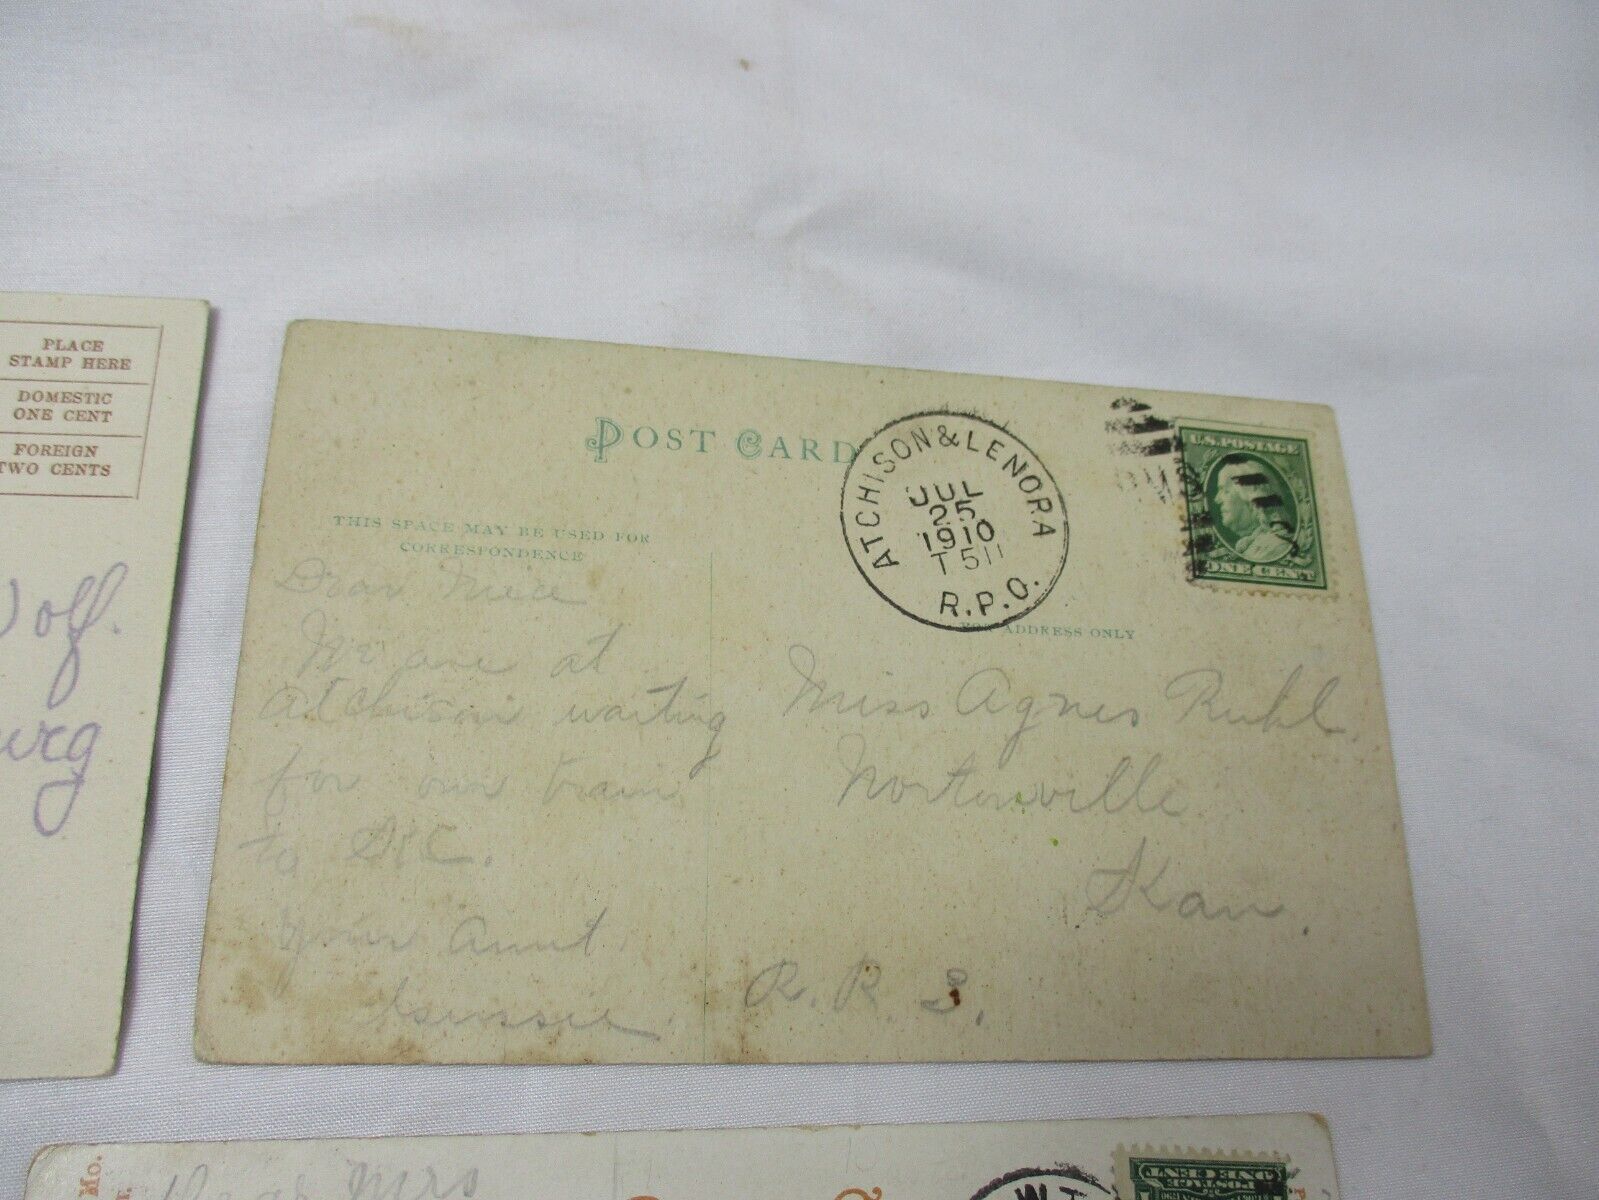 PLACE
STAMP HERE
DOMESTIC
ONE CENT
FOREIGN
TWO CENTS
POST CARD
THIS SPACE MAY BE USED FOR
CORRESPONDENCE
FOR ADDRESS ONLY
ATCHISON & LENORA
JUL
25
1910
T 511
R.P.O.
U.S. POSTAGE
ONE CENT
Dear Niece
We are at
Atchison waiting
for our train
to
Your Aunt
Miss Agnes Ruhl.
Nortonville
Kan.
R. R. 3.
Mo.
Dear Mrs